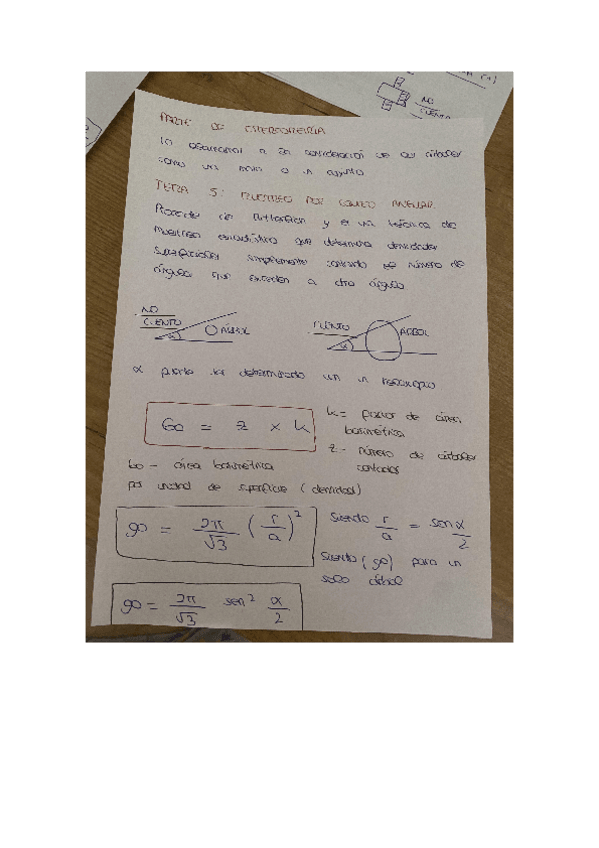 NO
CUENTO
PARTE DE ESTEREOMETRÍA
consideración de los árboles
como un
TEMA 5: MUESTREO POR CONTEO ANGULAR
Procede de Bitterlich y es una técnica de
muestreo estadístico que determina densidades
superficiales simplemente contando el número de
ángulos que exceden a otro ángulo
NO
CUENTO
ÁRBOL
α
CUENTO
ÁRBOL
α
α puede ser determinado con un relascopio
G0 = z x k
k = factor de área
basimétrica
z - número de árboles
contados
G0 - área basimétrica
por unidad de superficie (densidad)
g0 = 2π/√3 (r/a)²
Siendo r/a = sen α/2
Siendo (g0) para un
solo árbol
g0 = 2π/√3 sen² α/2